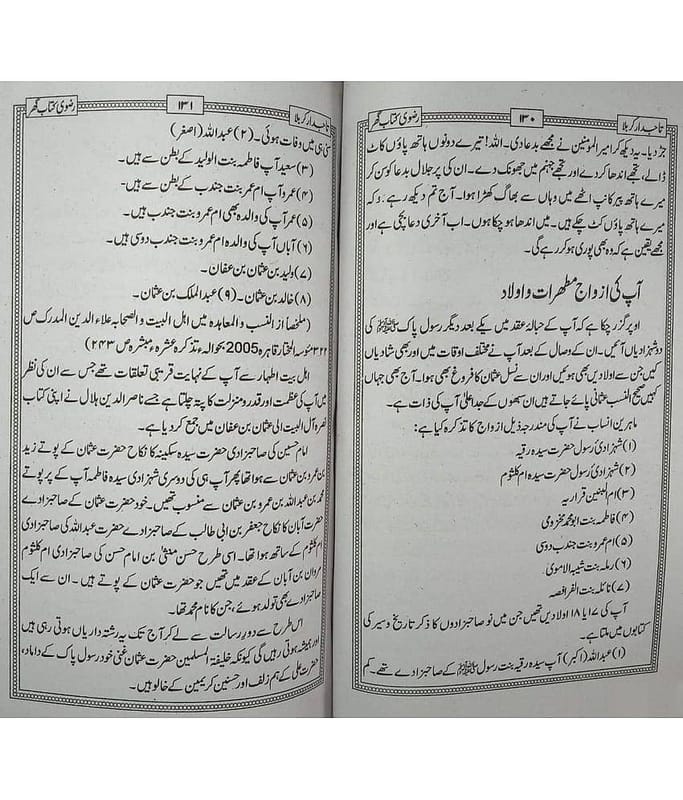 تاجدار کربلا ۱۳۰ رضوی کتاب گھر
جڑ دیا۔ یہ دیکھ کر امیر المومنین نے مجھے بددعا دی۔ اللہ! تیرے دونوں ہاتھ پاؤں کاٹ
ڈالے، تجھے اندھا کر دے اور تجھے جہنم میں جھونک دے۔ ان کی پر جلال بددعا کو سن کر
میرے ہاتھ پیر کانپ اٹھے میں وہاں سے بھاگ کھڑا ہوا۔ آج تم دیکھ رہے ہو کہ
میرے ہاتھ پاؤں کٹ چکے ہیں۔ میں اندھا ہو چکا ہوں۔ اب آخری دعا بچی ہے اور
مجھے یقین ہے کہ وہ بھی پوری ہو کر رہے گی۔
آپ کی ازواج مطہرات و اولاد
اوپر گزر چکا ہے کہ آپ کے حبالۂ عقد میں یکے بعد دیگر رسول پاک ﷺ کی
دو شہزادیاں آئیں۔ ان کے وصال کے بعد آپ نے مختلف اوقات میں اور بھی شادیاں
کیں جن سے اولادیں بھی ہوئیں اور ان سے نسل عثمان کا فروغ بھی ہوا۔ آج بھی جہاں
کہیں صحیح النسب عثمانی پائے جاتے ہیں ان سبھوں کے جد اعلیٰ آپ کی ذات ہے۔
ماہرین انساب نے آپ کی مندرجہ ذیل ازواج کا تذکرہ کیا ہے:
(۱) شہزادئ رسول حضرت سیدہ رقیہ
(۲) شہزادئ رسول حضرت سیدہ ام کلثوم
(۳) ام البنین قزاریہ
(۴) فاطمہ بنت ابو محمد مخزومی
(۵) ام عمرو بنت جندب دوسی
(۶) رملہ بنت شیبہ الاموی
(۷) نائلہ بنت الفرافصہ
آپ کی ۱۷ یا ۱۸ اولادیں تھیں جن میں نو صاحبزادوں کا ذکر تاریخ و سیر کی
کتابوں میں ملتا ہے۔
(۱) عبداللہ (اکبر) آپ سیدہ رقیہ بنت رسول ﷺ کے صاحبزادے تھے۔ کم
تاجدار کربلا ۱۳۱ رضوی کتاب گھر
سنی ہی میں وفات ہوئی۔ (۲) عبداللہ (اصغر)
(۳) سعید آپ فاطمہ بنت الولید کے بطن سے ہیں۔
(۴) عمرو آپ ام عمر بنت جندب کے بطن سے ہیں۔
(۵) عمر آپ کی والدہ بھی ام عمرو بنت جندب ہیں۔
(۶) اباں آپ کی والدہ ام عمرو بنت جندب دوسی ہیں۔
(۷) ولید بن عثمان بن عفان۔
(۸) خالد بن عثمان۔ (۹) عبدالملک بن عثمان۔
(ملخصا از النسب و المعاہدہ میں اہل البیت و الصحابہ علاء الدین المدرک ص
۳۲۲ موسسۃ المختار قاہرہ 2005 بحوالہ تذکرہ عشرہ مبشرہ ص ۲۴۳)
اہل بیت اطہار سے آپ کے نہایت قریبی تعلقات تھے جس سے ان کی نظر
میں آپ کی عظمت اور قدر و منزلت کا پتہ چلتا ہے جسے ناصر الدین ہلال نے اپنی کتاب
نصرہ آل البیت الی عثمان بن عفان میں جمع کر دیا ہے۔
امام حسین کی صاحبزادی حضرت سیدہ سکینہ کا نکاح حضرت عثمان کے پوتے زید
بن عمرو بن عثمان سے ہوا تھا پھر آپ ہی کی دوسری شہزادی سیدہ فاطمہ آپ کے پر پوتے
محمد بن عبداللہ بن عمرو بن عثمان سے منسوب تھیں۔ خود حضرت عثمان کے صاحبزادے
حضرت آبان کا نکاح جعفر بن ابی طالب کے صاحبزادے حضرت عبداللہ کی صاحبزادی
ام کلثوم کے ساتھ ہوا تھا۔ اسی طرح حسن مثنیٰ بن امام حسن کی صاحبزادی ام کلثوم
مروان بن آبان کے عقد میں تھیں جو حضرت عثمان کے پوتے ہیں۔ ان سے ایک
صاحبزادے بھی تولد ہوئے، جن کا نام محمد تھا۔
اس طرح سے دور رسالت سے لے کر آج تک یہ رشتہ داریاں ہوتی رہی ہیں
اور ہمیشہ ہوتی رہیں گی کیونکہ خلیفۃ المسلمین حضرت عثمان غنی خود رسول پاک کے داماد،
حضرت علی کے ہم زلف اور حسنین کریمین کے خالو ہیں۔